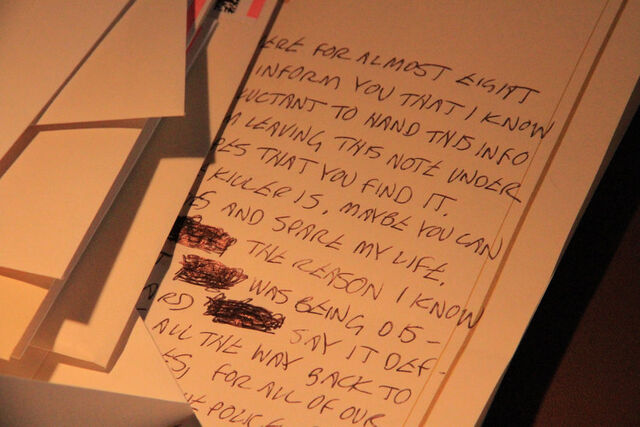 ERE FOR ALMOST EIGHT
INFORM YOU THAT I KNOW
UCTANT TO HAND THIS INFO
M LEAVING THIS NOTE UNDER
PES THAT YOU FIND IT.
KILLER IS. MAYBE YOU CAN
ES AND SPARE MY LIFE.
THE REASON I KNOW
WAS BEING DIS-
RD SAY IT DEF-
ALL THE WAY BACK TO
ES, FOR ALL OF OUR
POLICE